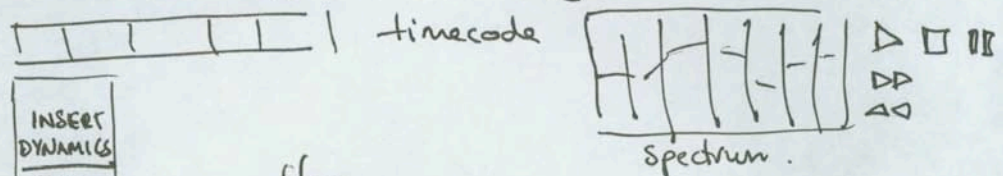 timecode
INSERT
DYNAMICS
spectrum.